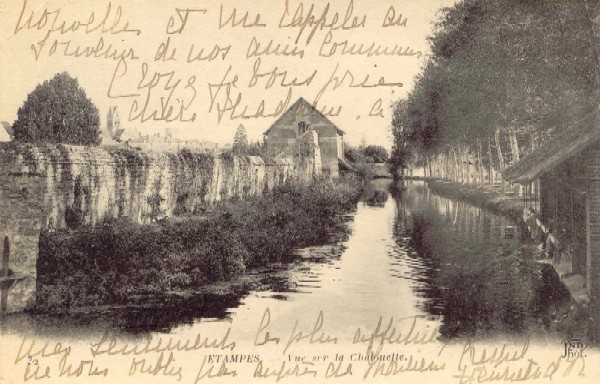 nouvelles et me rappeler au
souvenir de nos amis communs
Croyez je vous prie
chère Madame. à
mes sentiments les plus affectueux
ne nous oubliez pas auprès de Monsieur
32
ETAMPES. - Vue sur la Chalouette.
ND
Phot